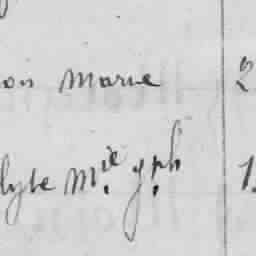 ois Marie 2
lyte M.ie J.ph 1.